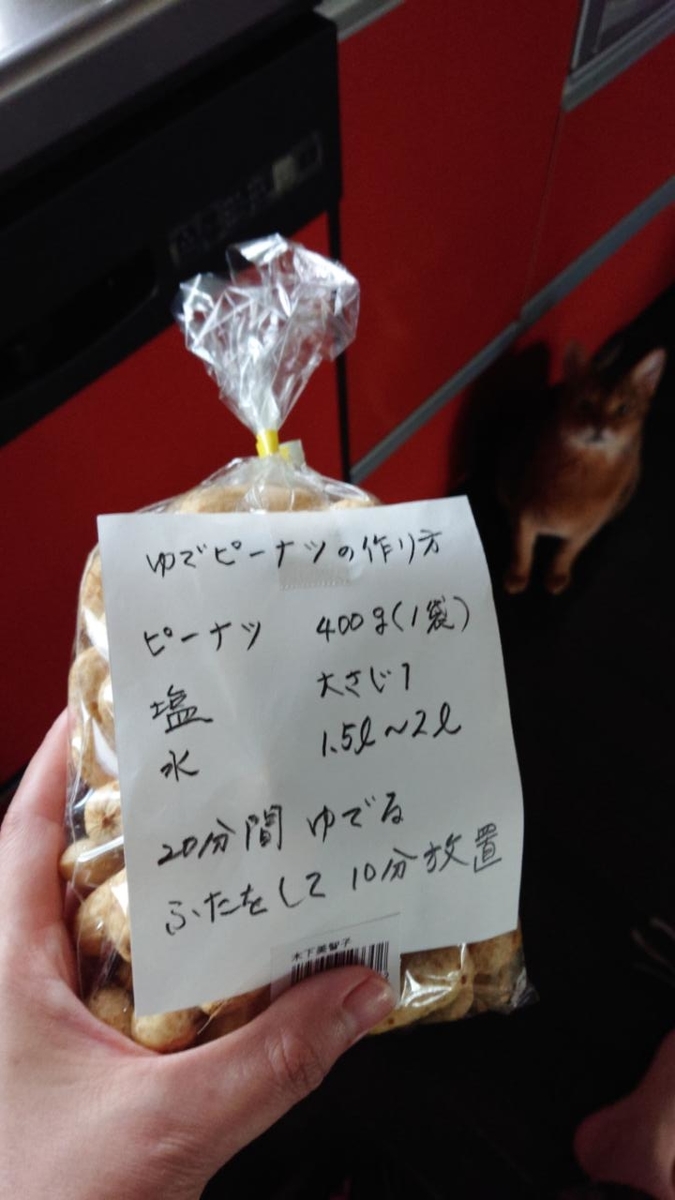 ゆでピーナツの作り方
ピーナツ 400g(1袋)
塩 大さじ1
水 1.5ℓ~2ℓ
20分間 ゆでる
ふたをして 10分放置
木下美智子